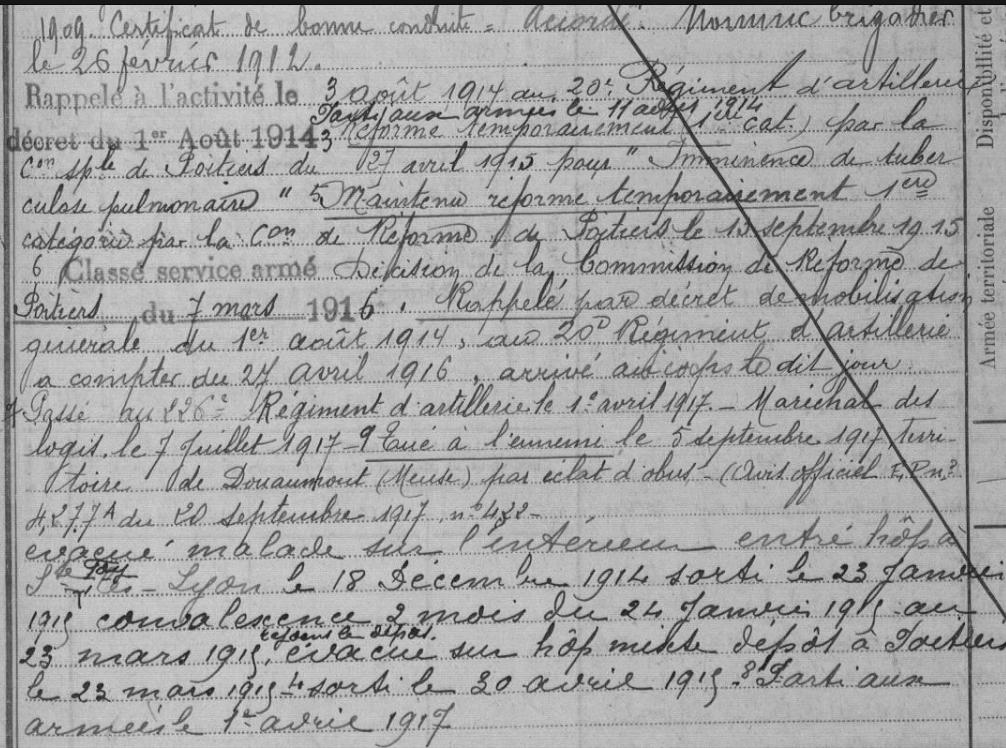 1909. Certificat de bonne conduite = Accordé. Nommé brigadier
le 26 février 1912.
Rappelé à l'activité le 3 août 1914 au 20e Régiment d'artillerie
Parti aux armées le 11 août 1914
décret du 1er Août 1914 3 Réformé temporairement (1ère cat.) par la
Con sple de Poitiers du 27 avril 1915 pour " Imminence de tuber-
culose pulmonaire " 5 Maintenu réformé temporairement 1ère
catégorie par la Con de Réforme de Poitiers le 15 septembre 1915
6 Classé service armé Décision de la Commission de Réforme de
Poitiers du 7 mars 1916. Rappelé par décret de mobilisation
générale du 1er août 1914, au 20e Régiment d'artillerie
a compter du 27 avril 1916, arrivé au corps le dit jour
7 Passé au 226e Régiment d'artillerie le 1er avril 1917. - Maréchal des
logis le 7 Juillet 1917 - 9 Tué à l'ennemi le 5 septembre 1917, terri-
toire de Douaumont (Meuse) par éclat d'obus - (Avis officiel
4,277A du 20 septembre 1917, n° 422 -
évacué malade sur l'intérieur entré hôp
Lyon le 18 Décembre 1914 sorti le 23 Janvier
1915 convalescence 2 mois du 24 Janvier 1915 au
rejoint le dépôt.
23 mars 1915, évacué sur hôp mixte dépôt à Poitiers
le 23 mars 1915 4 sorti le 30 avril 1915 8 Parti aux
armées le 1er avril 1917
Disponibilité et
Armée territoriale